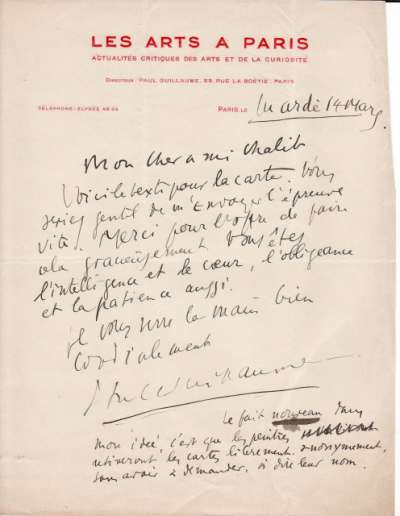 LES ARTS A PARIS
ACTUALITÉS CRITIQUES DES ARTS ET DE LA CURIOSITÉ
DIRECTEUR : PAUL GUILLAUME, 59, RUE LA BOÉTIE, PARIS
TÉLÉPHONE : ÉLYSÉE
PARIS LE Mardi 14 Mars
Mon cher ami Chalit
Voici le texte pour la carte. Vous
seriez gentil de m'envoyer l'épreuve
vite. Merci pour l'offre de faire
cela gracieusement. Vous êtes
l'intelligence et le cœur, l'obligeance
et la patience aussi.
Je vous serre la main bien
cordialement
Paul Guillaume
Le fait nouveau dans
mon idée c'est que les peintres
retireront les cartes librement. anonymement,
sans avoir à demander, ni dire leur nom.